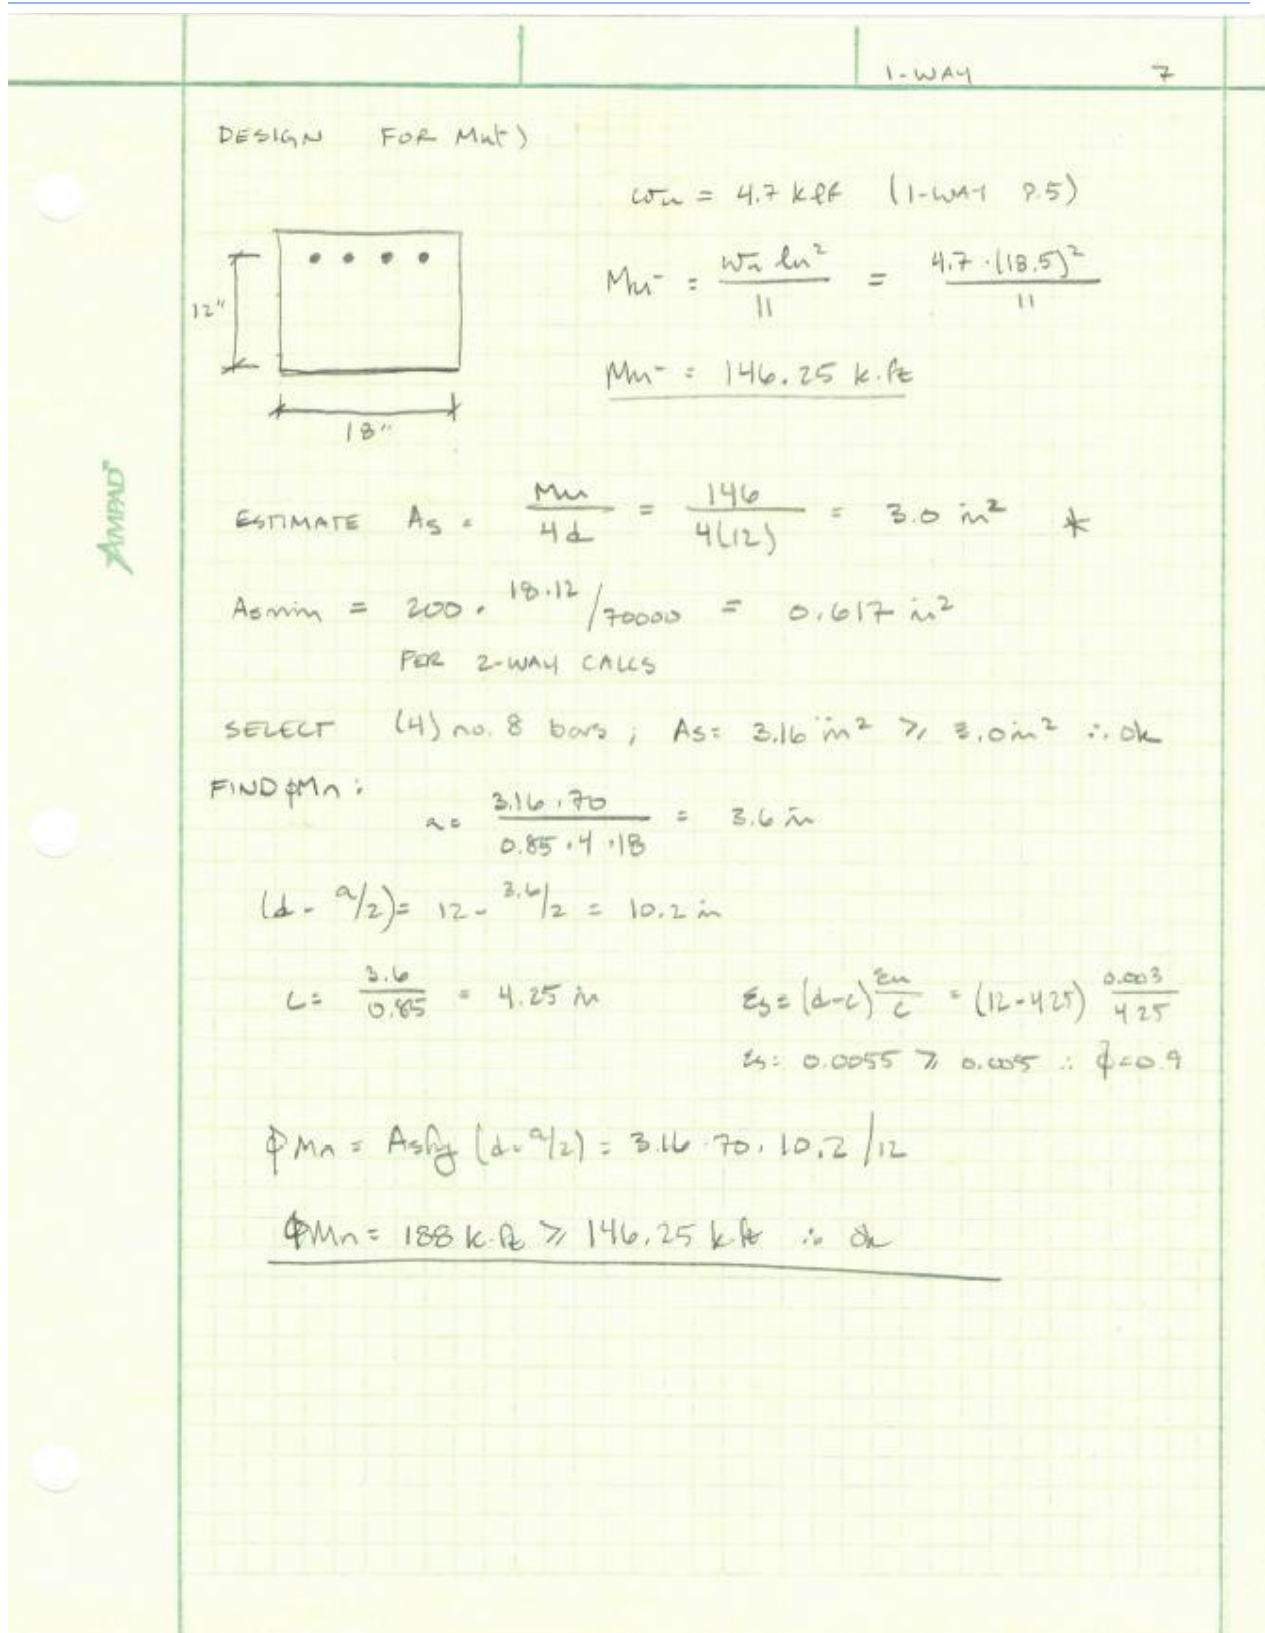 1-WAY 7
DESIGN FOR Mu(-)
wu = 4.7 klf (1-WAY P.5)
Mu⁻ = wu ln² / 11 = 4.7·(18.5)² / 11
12"
Mu⁻ = 146.25 k·ft
18"
AMPAD
ESTIMATE As = Mu / 4d = 146 / 4(12) = 3.0 in² *
Asmin = 200 · 18·12 / 70000 = 0.617 in²
PER 2-WAY CALCS
SELECT (4) no. 8 bars ; As = 3.16 in² ≥ 3.0 in² ∴ ok
FIND φMn :
a = 3.16·70 / 0.85·4·18 = 3.6 in
(d - a/2) = 12 - 3.6/2 = 10.2 in
c = 3.6 / 0.85 = 4.25 in εs = (d-c) εu / c = (12-4.25) 0.003 / 4.25
εs = 0.0055 ≥ 0.005 ∴ φ=0.9
φMn = Asfy (d-a/2) = 3.16·70·10.2 /12
φMn = 188 k·ft ≥ 146.25 k·ft ∴ ok